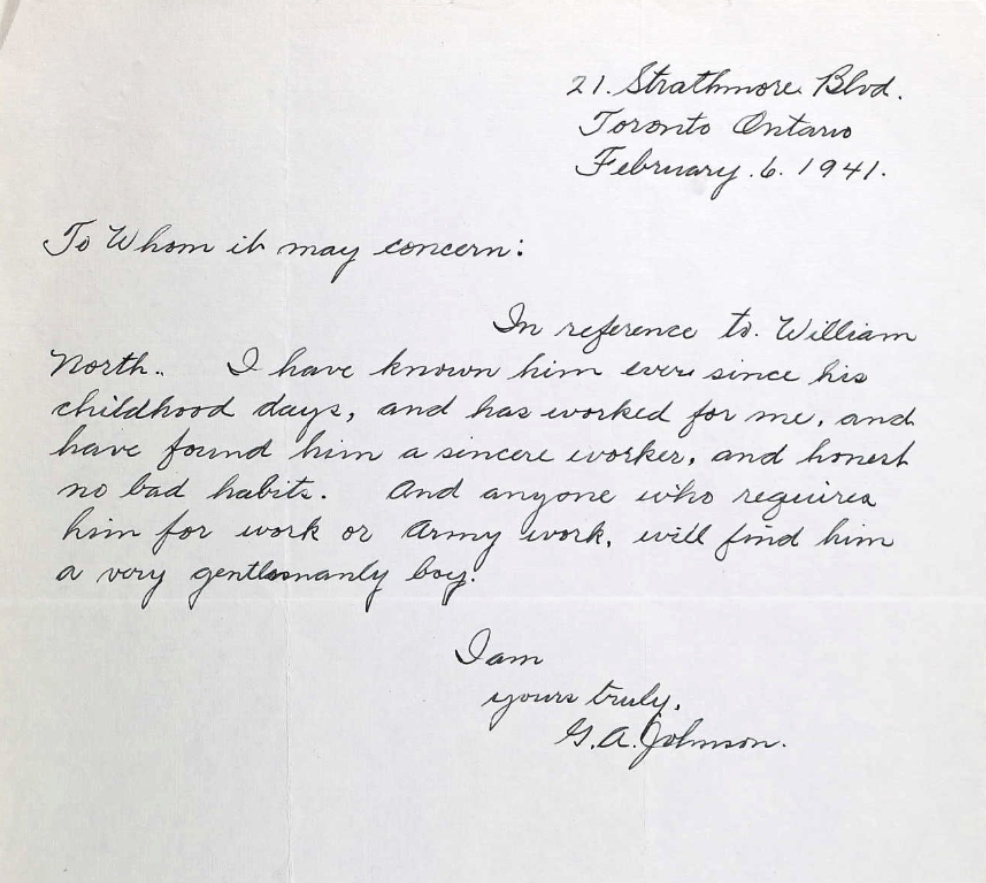 21. Strathmore Blvd.
Toronto Ontario
February. 6. 1941.
To Whom it may concern:
In reference to. William
North.. I have known him ever since his
childhood days, and has worked for me, and
have found him a sincere worker, and honest
no bad habits. And anyone who requires
him for work or Army work, will find him
a very gentlemanly boy.
I am
yours truly,
G. A. Johnson.